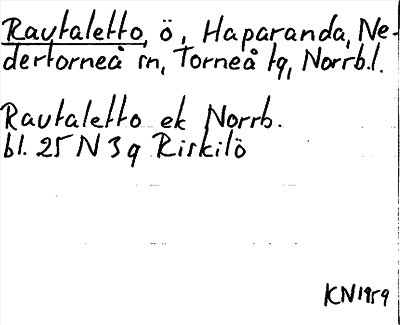 Rautaletto, ö, Haparanda, Ne-
dertorneå sn, Torneå tg, Norrb.l.
Rautaletto ek Norrb.
bl. 25 N 3 g Riskilö
KN 1959